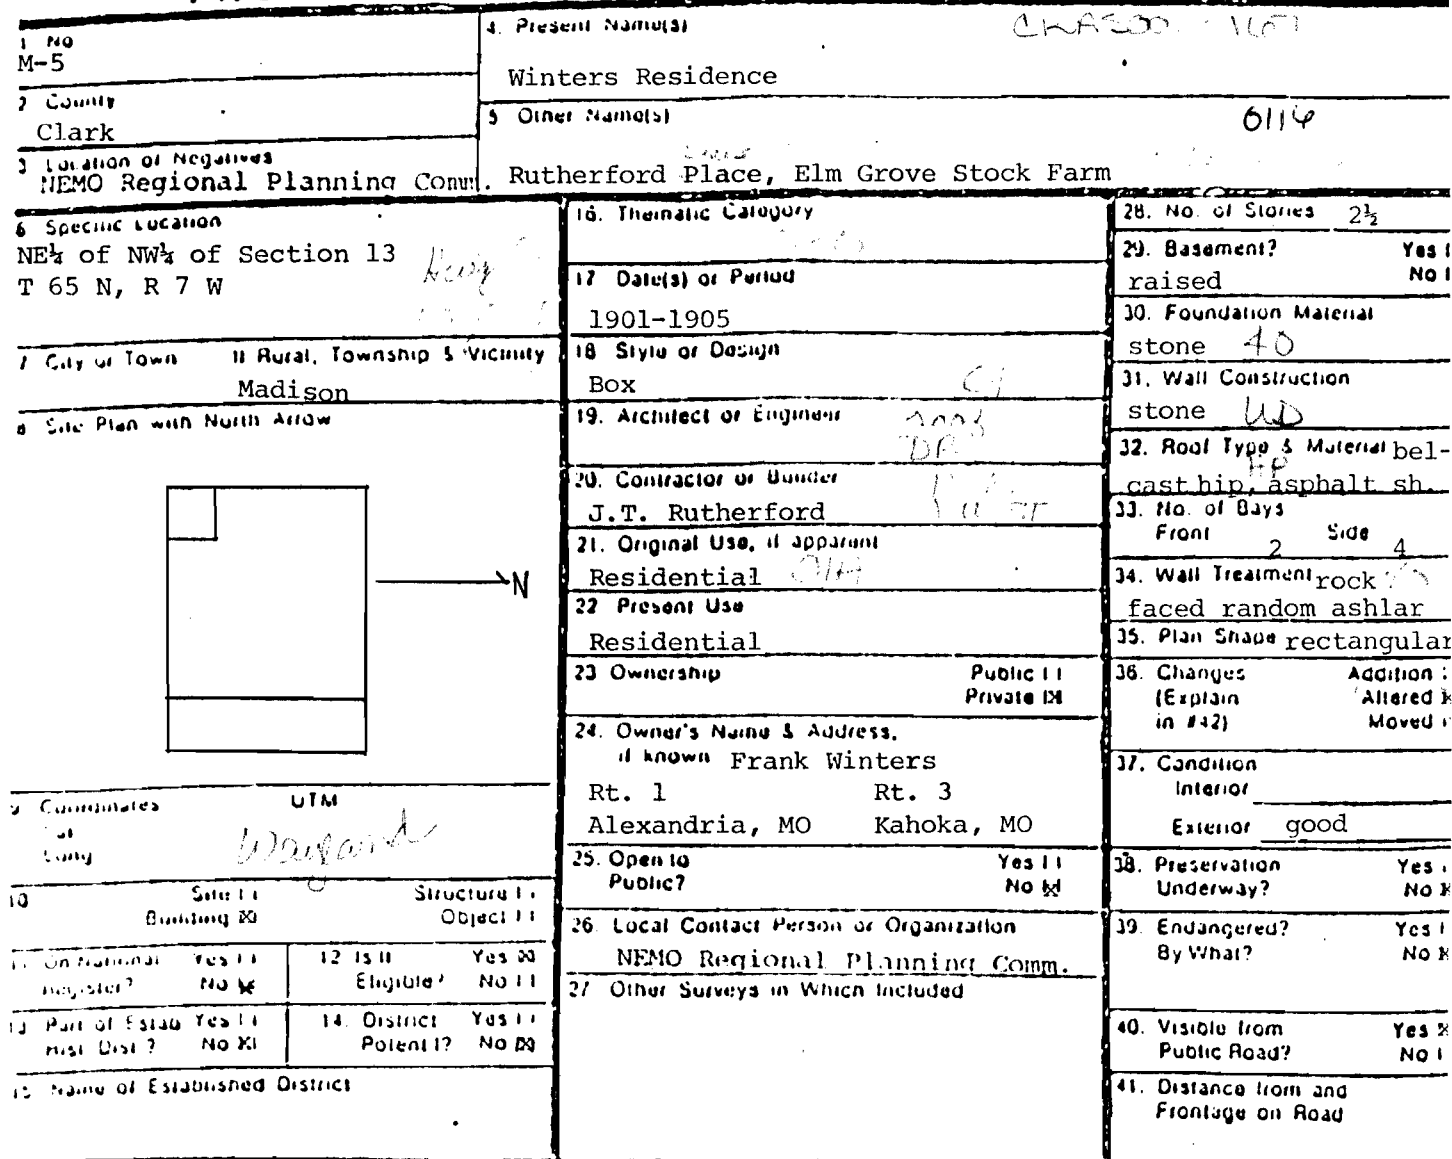 1 No
M-5
4. Present Name(s)
Winters Residence
2 County
Clark
5 Other Name(s)
0114
Rutherford Place, Elm Grove Stock Farm
3 Location of Negatives
NEMO Regional Planning Comm.
6 Specific Location
NE¼ of NW¼ of Section 13
T 65 N, R 7 W
7 City or Town If Rural, Township & Vicinity
Madison
8 Site Plan with North Arrow
N
9 Coordinates UTM
Lat
Long
Wayland
10 Site [ ] Structure [ ]
Building [X] Object [ ]
11 On National Register? Yes [ ] No [X]
12 Is It Eligible? Yes [X] No [ ]
13 Part of Estab Hist. Dist.? Yes [ ] No [X]
14. District Potent'l? Yes [ ] No [X]
15 Name of Established District
16. Thematic Category
17 Date(s) or Period
1901-1905
18 Style or Design
Box
19. Architect or Engineer
20. Contractor or Builder
J.T. Rutherford
21. Original Use, if apparent
Residential
22 Present Use
Residential
23 Ownership Public [ ]
Private [X]
24. Owner's Name & Address,
if known Frank Winters
Rt. 1 Rt. 3
Alexandria, MO Kahoka, MO
25. Open to Public? Yes [ ]
No [X]
26. Local Contact Person or Organization
NEMO Regional Planning Comm.
27 Other Surveys in Which Included
28. No. of Stories 2½
29. Basement? Yes
raised No
30. Foundation Material
stone 40
31. Wall Construction
stone
32. Roof Type & Material bel-
cast hip, asphalt sh.
HP
33. No. of Bays
Front 2 Side 4
34. Wall Treatment rock
faced random ashlar
35. Plan Shape rectangular
36. Changes Addition
(Explain Altered X
in #42) Moved
37. Condition
Interior
Exterior good
38. Preservation Yes
Underway? No X
39. Endangered? Yes
By What? No X
40. Visible from Yes X
Public Road? No
41. Distance from and
Frontage on Road